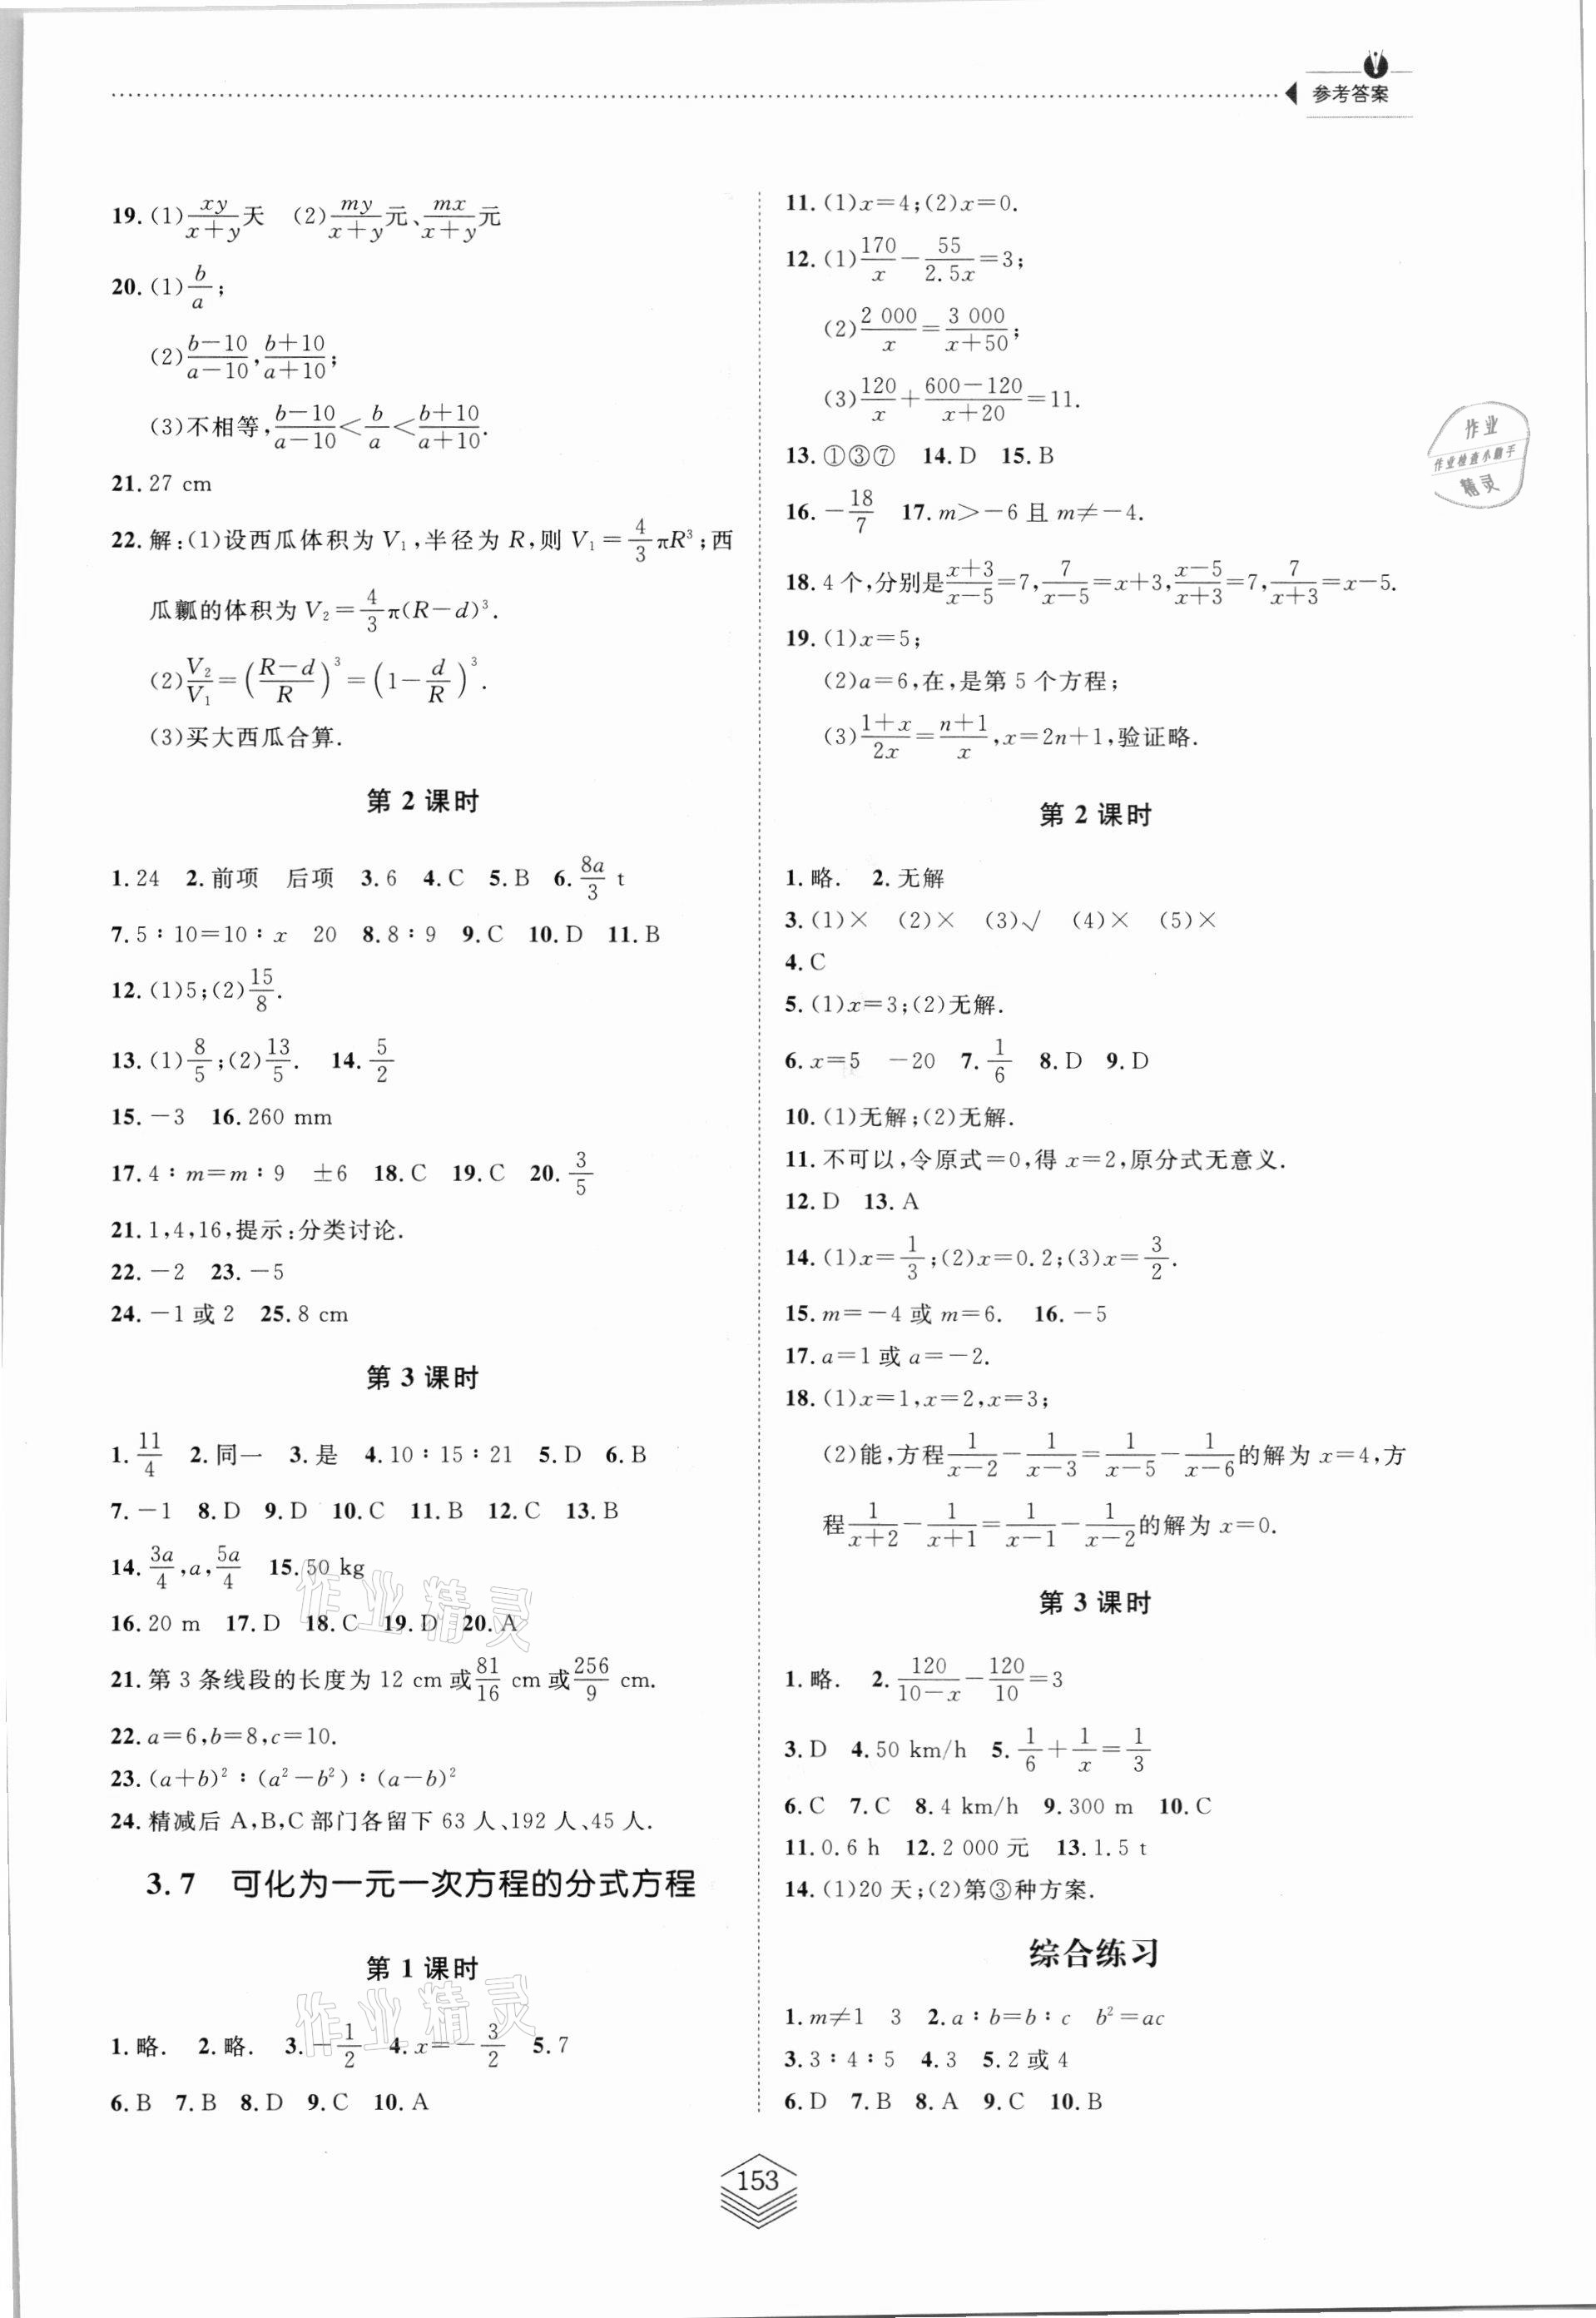 参考答案
19.(1)xy/(x+y)天 (2)my/(x+y)元、mx/(x+y)元
20.(1)b/a;
(2)(b-10)/(a-10),(b+10)/(a+10);
(3)不相等,(b-10)/(a-10)<b/a<(b+10)/(a+10).
21.27 cm
22.解:(1)设西瓜体积为 V₁,半径为 R,则 V₁=4/3πR³;西
瓜瓤的体积为 V₂=4/3π(R-d)³.
(2)V₂/V₁=((R-d)/R)³=(1-d/R)³.
(3)买大西瓜合算.
第 2 课时
1.24 2.前项 后项 3.6 4.C 5.B 6.8a/3 t
7.5∶10=10∶x 20 8.8∶9 9.C 10.D 11.B
12.(1)5;(2)15/8.
13.(1)8/5;(2)13/5. 14.5/2
15.-3 16.260 mm
17.4∶m=m∶9 ±6 18.C 19.C 20.3/5
21.1,4,16,提示:分类讨论.
22.-2 23.-5
24.-1 或 2 25.8 cm
第 3 课时
1.11/4 2.同一 3.是 4.10∶15∶21 5.D 6.B
7.-1 8.D 9.D 10.C 11.B 12.C 13.B
14.3a/4,a,5a/4 15.50 kg
16.20 m 17.D 18.C 19.D 20.A
21.第 3 条线段的长度为 12 cm或81/16 cm或256/9 cm.
22.a=6,b=8,c=10.
23.(a+b)²∶(a²-b²)∶(a-b)²
24.精减后 A,B,C部门各留下 63 人、192 人、45 人.
3.7 可化为一元一次方程的分式方程
第 1 课时
1.略. 2.略. 3.-1/2 4.x=-3/2 5.7
6.B 7.B 8.D 9.C 10.A
11.(1)x=4;(2)x=0.
12.(1)170/x-55/2.5x=3;
(2)2 000/x=3 000/(x+50);
(3)120/x+(600-120)/(x+20)=11.
13.①③⑦ 14.D 15.B
16.-18/7 17.m>-6 且 m≠-4.
18.4 个,分别是(x+3)/(x-5)=7,7/(x-5)=x+3,(x-5)/(x+3)=7,7/(x+3)=x-5.
19.(1)x=5;
(2)a=6,在,是第 5 个方程;
(3)(1+x)/2x=(n+1)/x,x=2n+1,验证略.
第 2 课时
1.略. 2.无解
3.(1)× (2)× (3)√ (4)× (5)×
4.C
5.(1)x=3;(2)无解.
6.x=5 -20 7.1/6 8.D 9.D
10.(1)无解;(2)无解.
11.不可以,令原式=0,得 x=2,原分式无意义.
12.D 13.A
14.(1)x=1/3;(2)x=0.2;(3)x=3/2.
15.m=-4 或 m=6. 16.-5
17.a=1 或 a=-2.
18.(1)x=1,x=2,x=3;
(2)能,方程1/(x-2)-1/(x-3)=1/(x-5)-1/(x-6)的解为 x=4,方
程1/(x+2)-1/(x+1)=1/(x-1)-1/(x-2)的解为 x=0.
第 3 课时
1.略. 2.120/(10-x)-120/10=3
3.D 4.50 km/h 5.1/6+1/x=1/3
6.C 7.C 8.4 km/h 9.300 m 10.C
11.0.6 h 12.2 000 元 13.1.5 t
14.(1)20 天;(2)第③种方案.
综合练习
1.m≠1 3 2.a∶b=b∶c b²=ac
3.3∶4∶5 4.3 5.2 或 4
6.D 7.B 8.A 9.C 10.B
153
作业
作业检查小助手
精灵
作业精灵
作业精灵